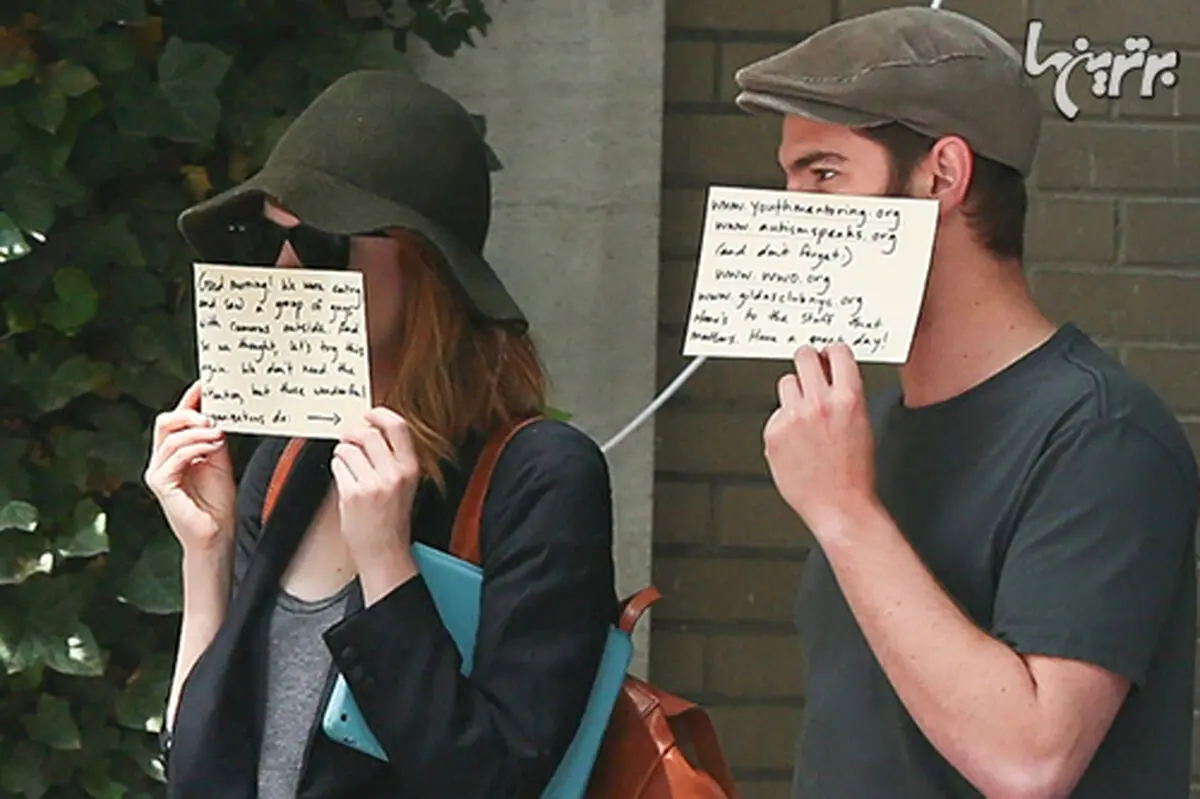 Good morning! We were eating
and saw a group of guys
with cameras outside. And
so we thought, let's try this
again. We don't need the
attention, but these wonderful
organizations do: →
www.youthmentoring.org
www.autismspeaks.org
(and don't forget!)
www.wwo.org
www.gildasclubnyc.org
Here's to the stuff that
matters. Have a great day!
برترین‌ها